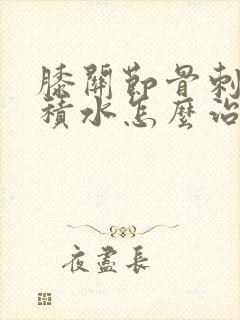 膝關節骨刺
積水怎麼治
夜盡長